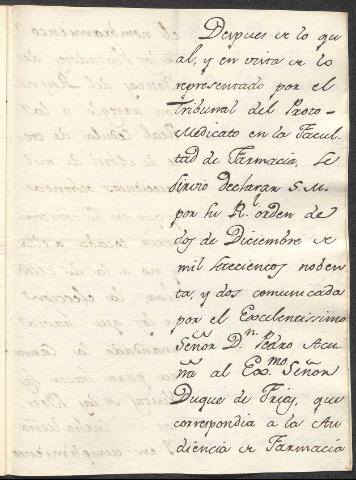 Despues de lo qu
al, y en vista de lo
representado por el
Tribunal del Proto-
Medicato en la Facul
tad de Farmacia, se
sirvio declarar S. M.
por su Rl. orden de
dos de Diciembre de
mil setecientos noben
ta, y dos comunicada
por el Excelentissimo
Señor Dn. Pedro Acu
ña al Exmo. Señor
Duque de Frias, que
correspondia a la Au
diencia de Farmacia